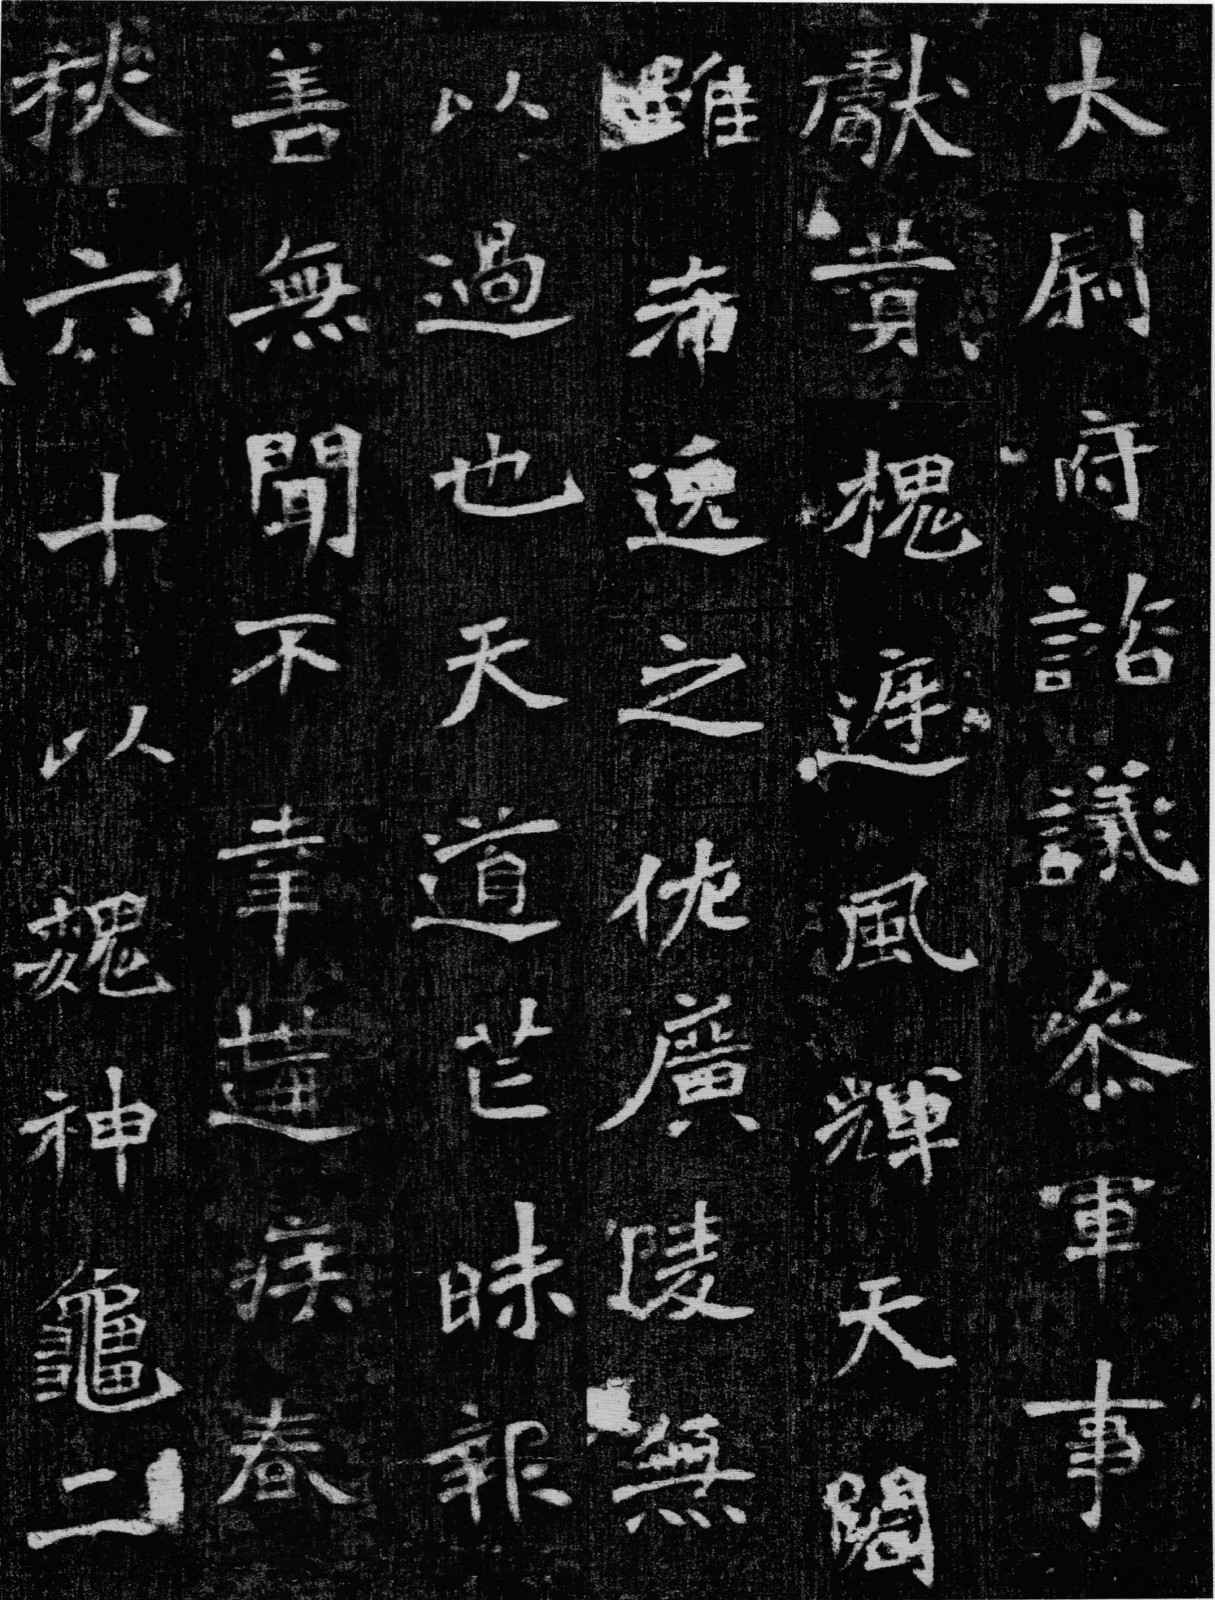 太尉府諮議參軍事
獻賛槐遲風輝天閣
雖希逸之佐廣陵無
以過也天道芒昧報
善無聞不幸遘疾春
秋六十以魏神龜二